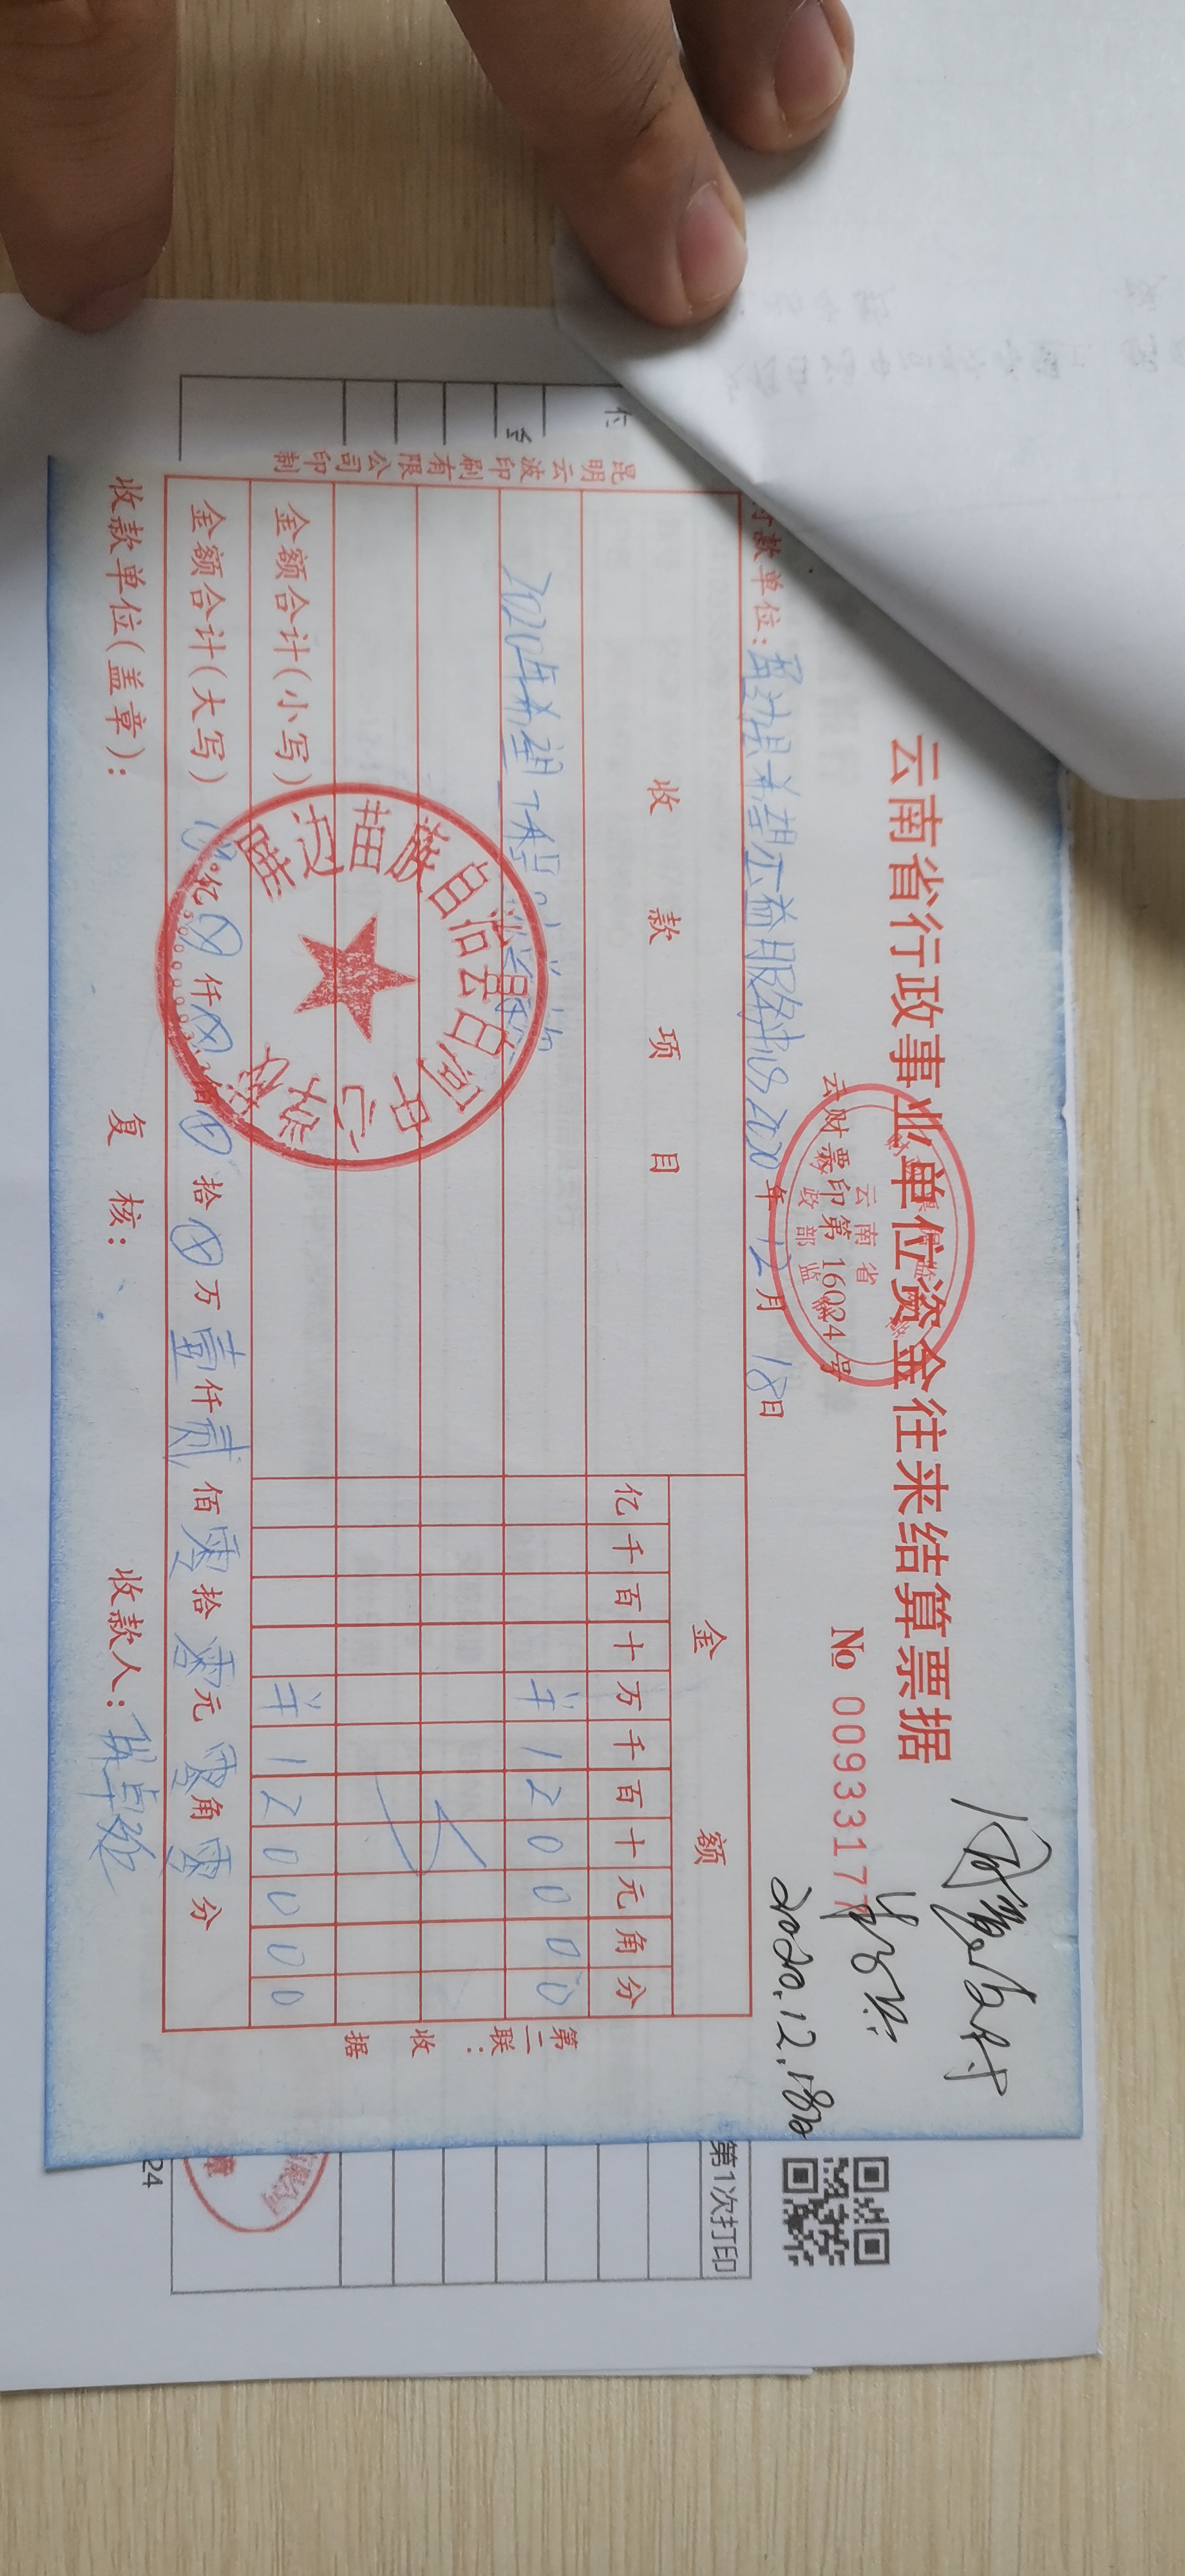 云南省行政事业单位资金往来结算票据
云财票印第 16024 号
云南省
№ 00933177
2020.12.18
付款单位:屏边县希望公益服务中心 2020 年 12 月 18 日
收 款 项 目
金 额
亿 千 百 十 万 千 百 十 元 角 分
2020年希望工程
¥ 1 2 0 0 0 0
金额合计(小写)
¥ 1 2 0 0 0 0
金额合计(大写)
亿 仟 佰 拾 万 壹 仟 贰 佰 零 拾 零 元 零 角 零 分
屏边苗族自治县白河中心学校
收款单位(盖章):
复 核:
收款人:
昆明云波印刷有限公司印制
第二联:收据
第1次打印
24